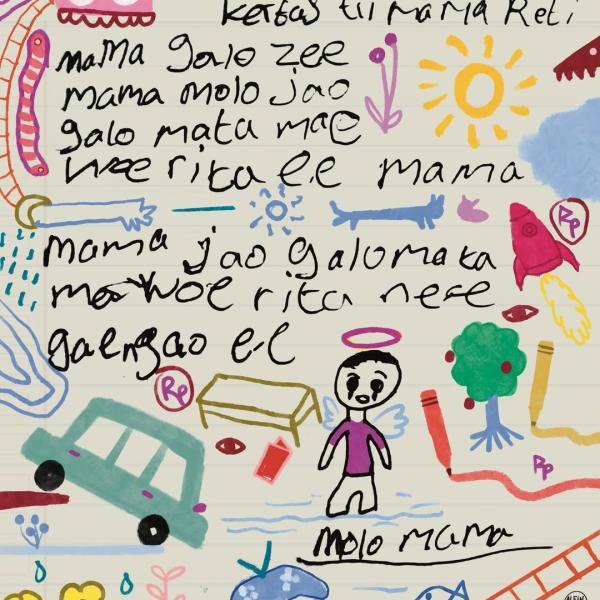 kertas tii mama Reti
mama galo zee
mama molo jao
galo mata mae
woe rita ee mama
mama jao galo mata
mae woe rita nee
gae ngao ee
Rp
Rp
Rp
molo mama